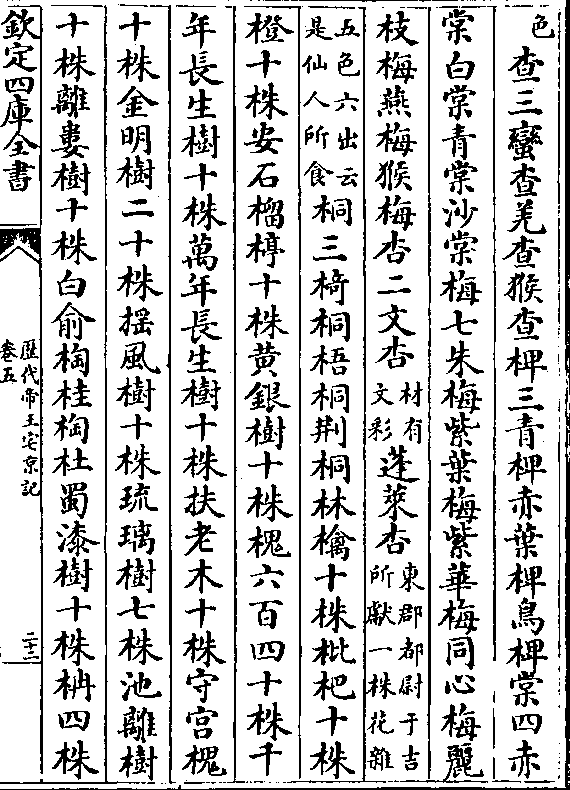 色查三蠻查羌查猴查椑三青椑赤葉椑鳥椑棠四赤
棠白棠青棠沙棠梅七朱梅紫葉梅紫華梅同心梅麗
枝梅燕梅猴梅杏二文杏材有文彩蓬萊杏東郡都尉于吉所獻一株花雜
五色六出云是仙人所食桐三椅桐梧桐荆桐林檎十株枇杷十株
橙十株安石榴楟十株黄銀樹十株槐六百四十株千
年長生樹十株萬年長生樹十株扶老木十株守宫槐
十株金明樹二十株揺風樹十株琉璃樹七株池離樹
十株離婁樹十株白俞梼桂梼杜蜀漆樹十株柟四株
欽定四庫全書
歴代帝王宅京記
卷五
二十二